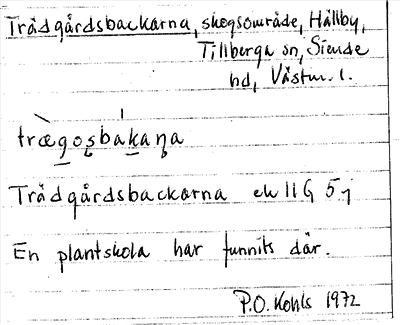 Trädgårdsbackarna, skogsområde, Hällby,
Tillberga sn, Siende
hd, Västm. l.
trægosbakaṇa
Trädgårdsbackarna ek 11G 5j
En plantskola har funnits där.
P.O. Kohls 1972